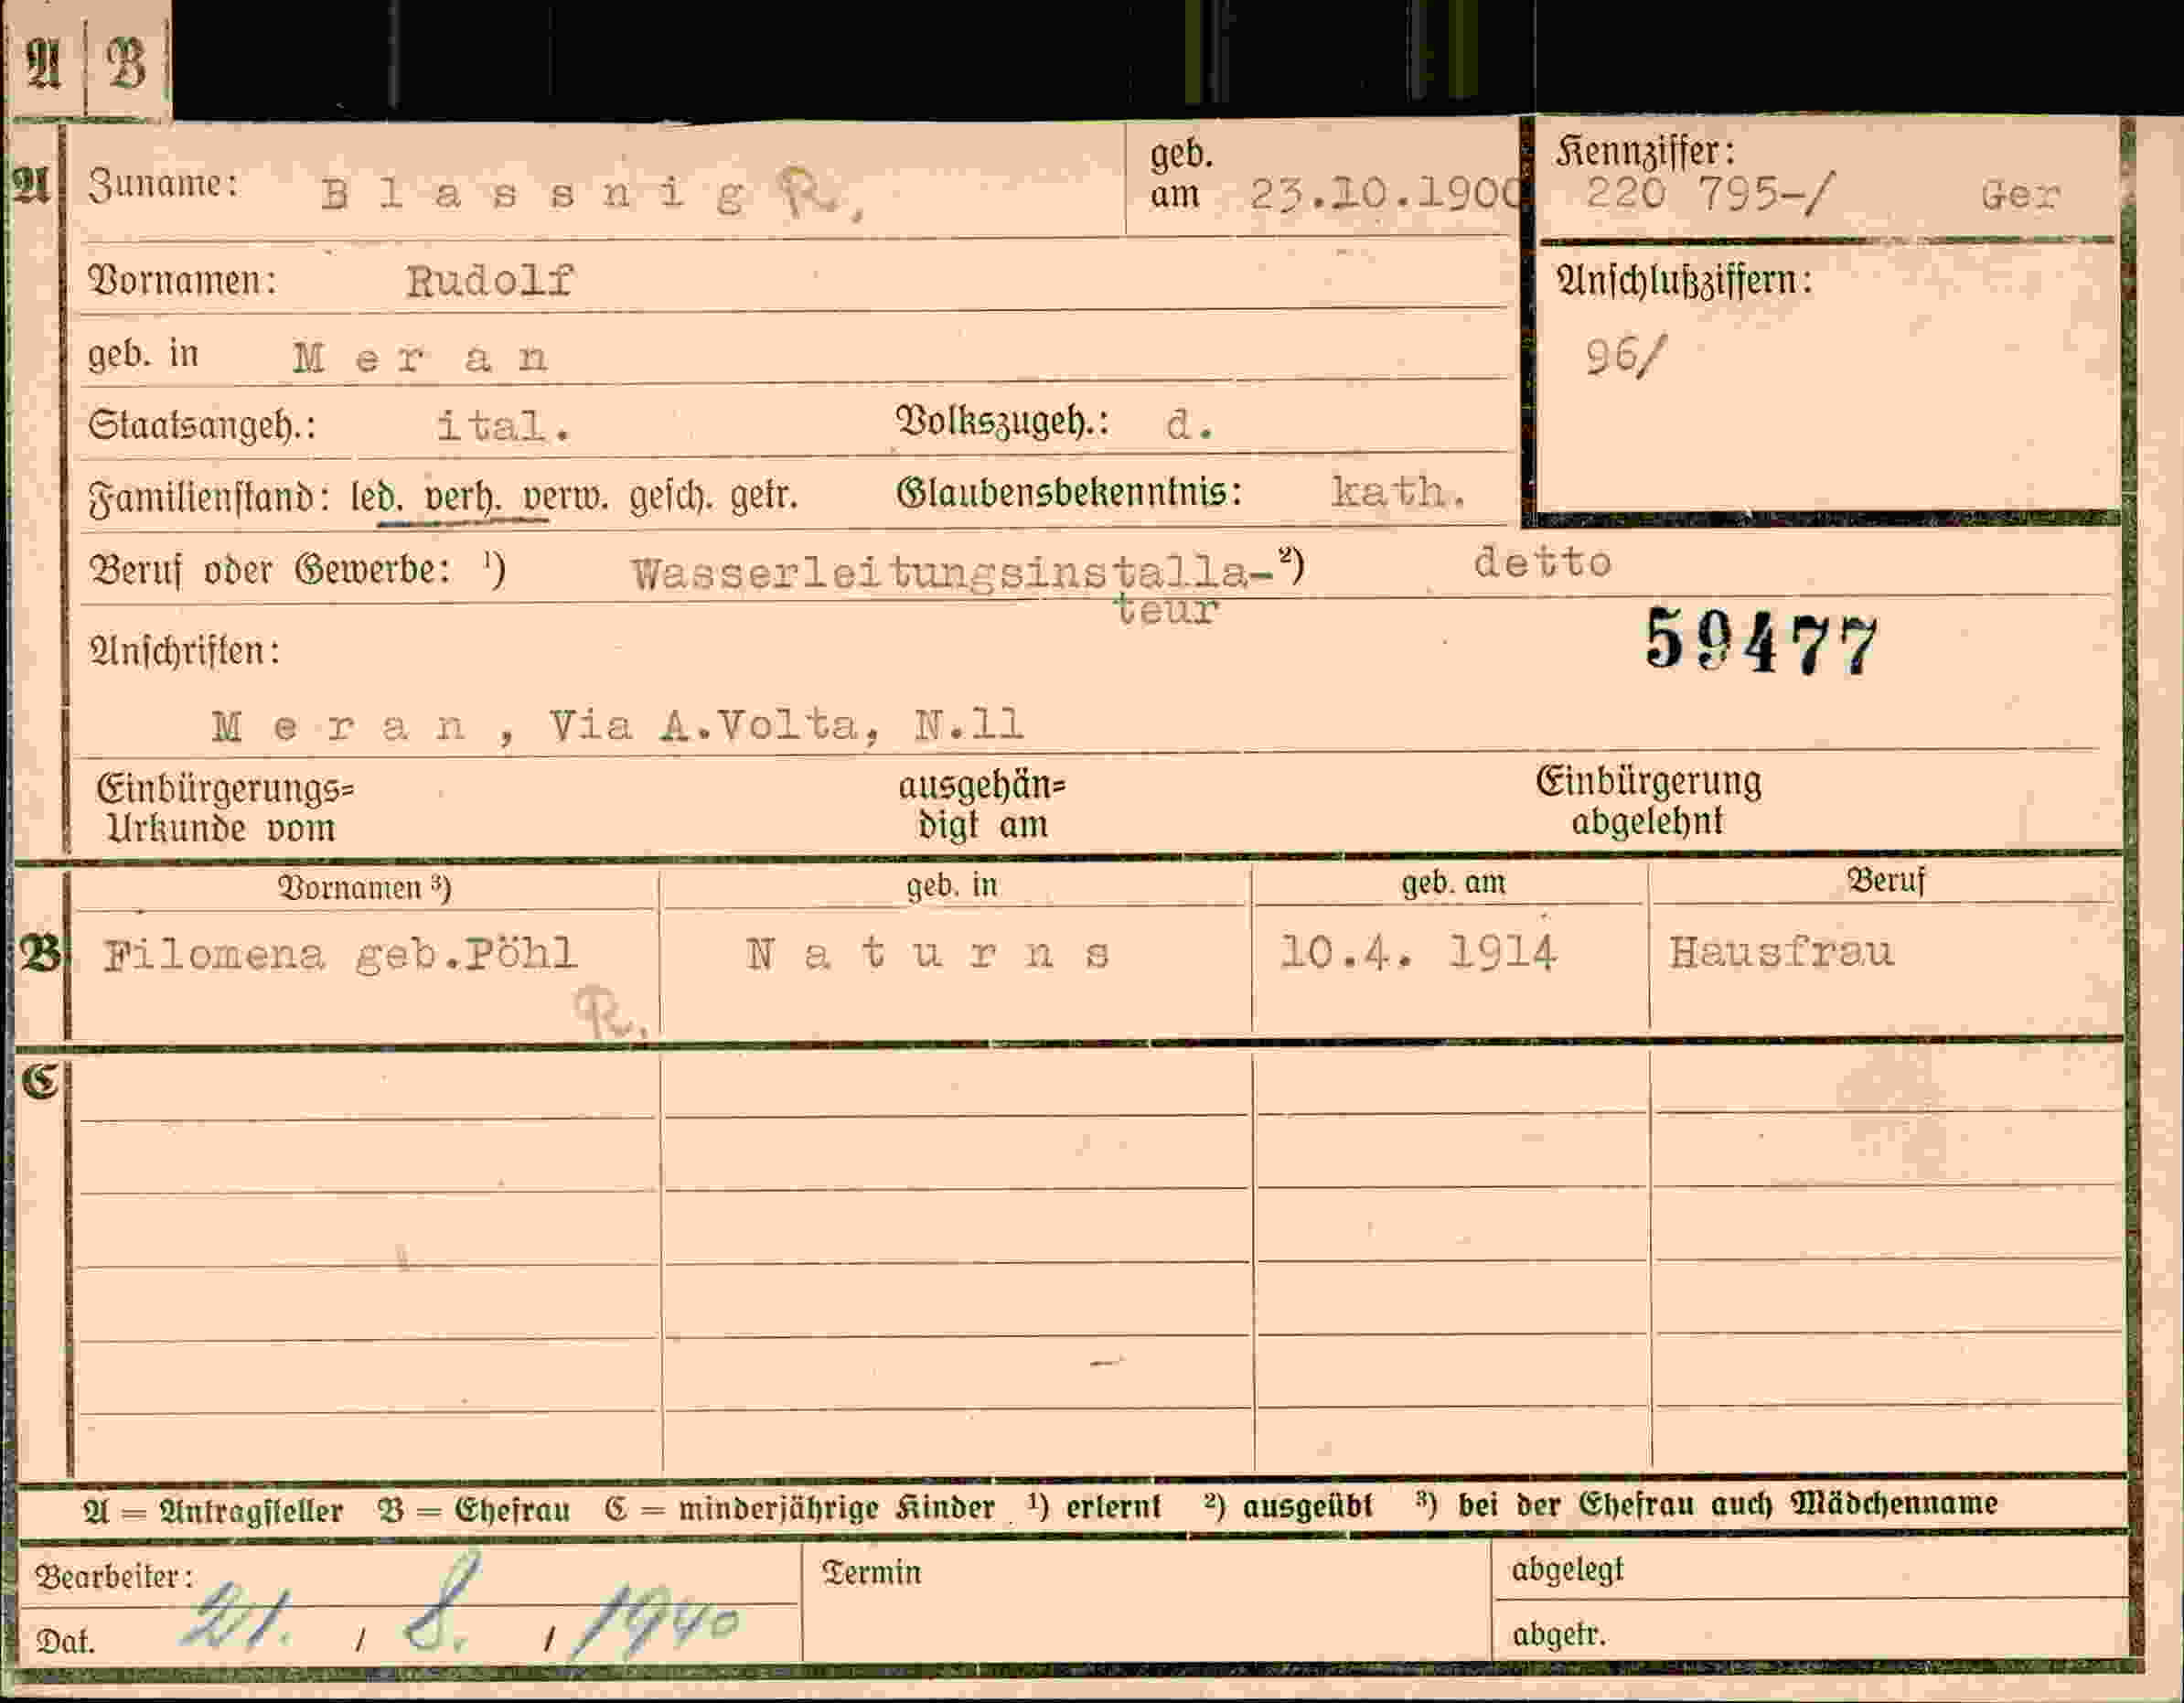 A B
A Zuname: Blassnig R. geb. am 23.10.1900 Kennziffer: 220 795-/ Ger
Vornamen: Rudolf Anschlußziffern:
geb. in Meran 96/
Staatsangeh.: ital. Volkszugeh.: d.
Familienstand: led. verh. verw. gesch. getr. Glaubensbekenntnis: kath.
Beruf oder Gewerbe: ¹) Wasserleitungsinstalla-²) detto
teur
Anschriften: 59477
Meran, Via A.Volta, N.11
Einbürgerungs= ausgehän= Einbürgerung
Urkunde vom digt am abgelehnt
Vornamen ³) geb. in geb. am Beruf
B Filomena geb.Pöhl Naturns 10.4. 1914 Hausfrau
R.
C
A = Antragsteller B = Ehefrau C = minderjährige Kinder ¹) erlernt ²) ausgeübt ³) bei der Ehefrau auch Mädchenname
Bearbeiter: Termin abgelegt
Dat. 21. / 8. / 1940 abgetr.